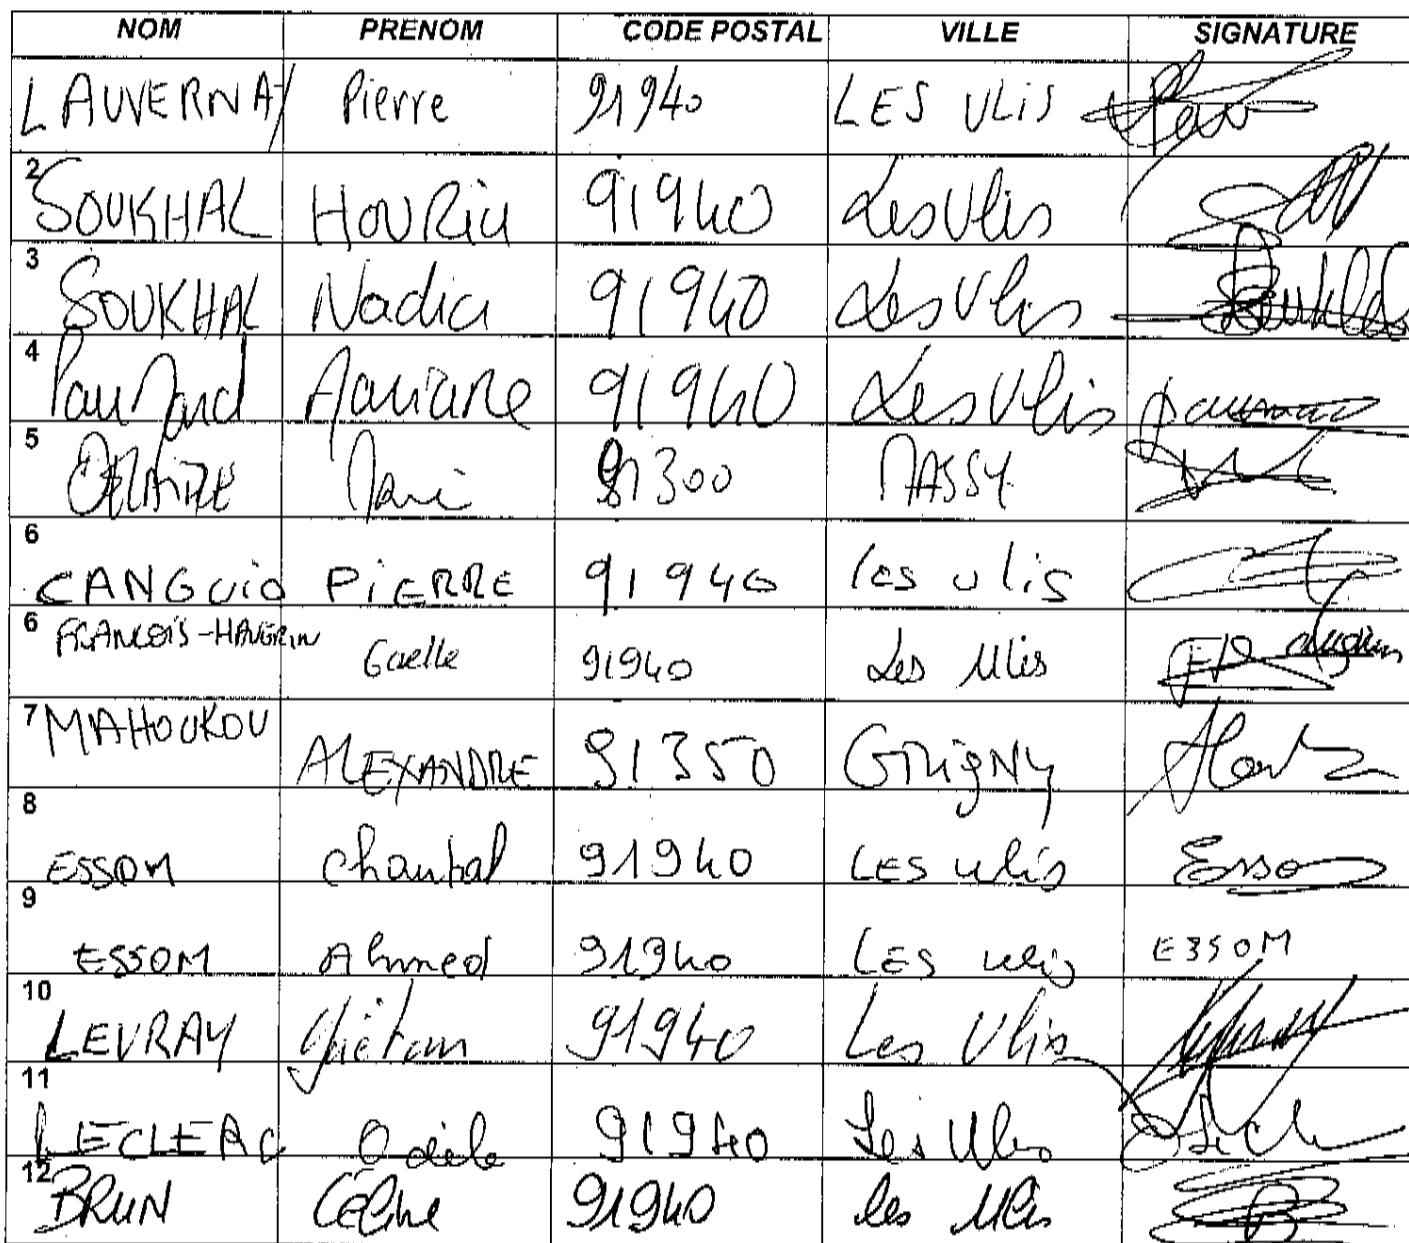 NOM PRENOM CODE POSTAL VILLE SIGNATURE
LAUVERNAY Pierre 91940 LES ULIS
2 SOUKHAL HOURIA 91940 Les Ulis
3 SOUKHAL Nadia 91940 Les Ulis Soukhal
4 91940 Les Ulis
5 91300 MASSY
6 CANGUIO PIERRE 91940 les ulis
6 FRANCOIS-HAUGRIN Gaelle 91940 Les Ulis
7 MAHOUKOU ALEXANDRE 91350 GRigNy
8 ESSOM Chantal 91940 LES ulis Essom
9 ESSOM Ahmed 91940 LES ulis ESSOM
10 LEVRAY Gaëtan 91940 Les Ulis
11 LECLERC Odile 91940 Les Ulis
12 BRUN Céline 91940 les Ulis